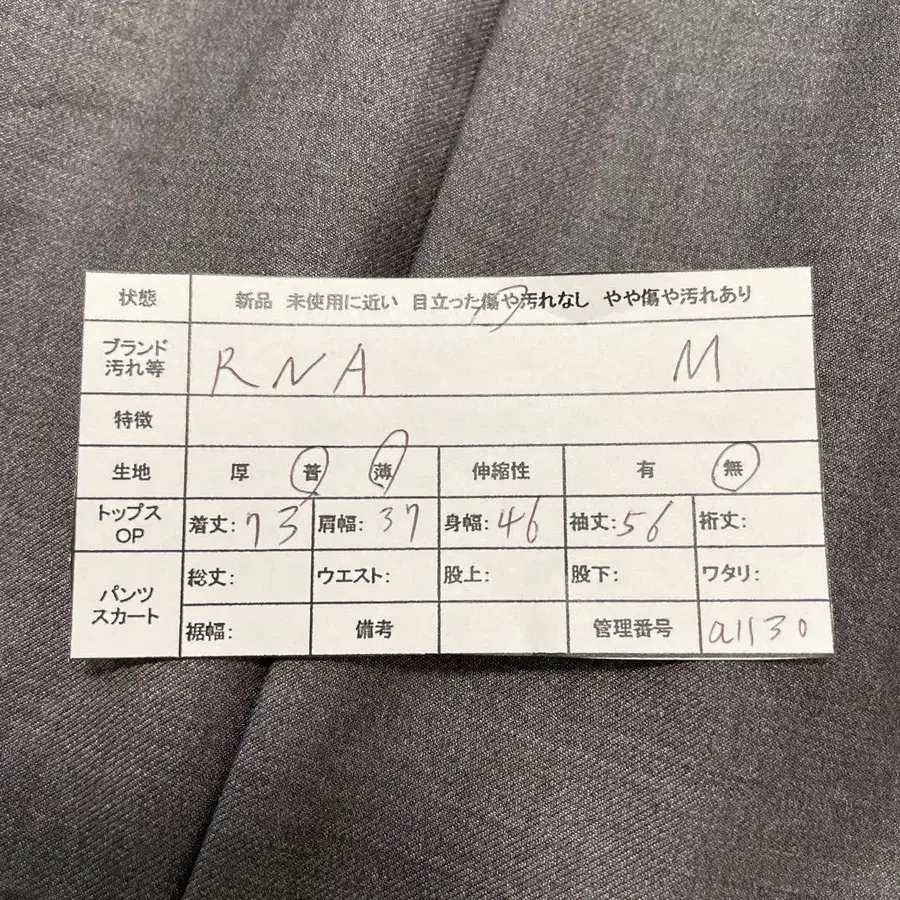 状態 新品 未使用に近い 目立った傷や汚れなし やや傷や汚れあり
ブランド
汚れ等 RNA M
特徴
生地 厚 普 薄 伸縮性 有 無
トップス
OP 着丈:73 肩幅:37 身幅:46 袖丈:56 裄丈:
パンツ
スカート 総丈: ウエスト: 股上: 股下: ワタリ:
裾幅: 備考 管理番号 a1130